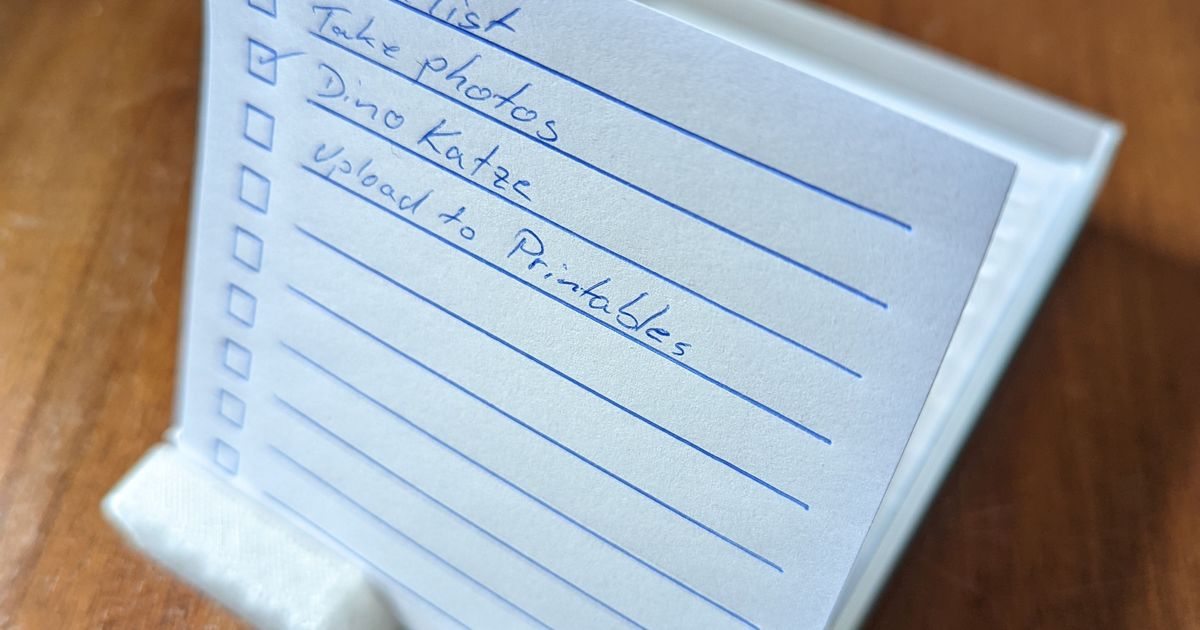 list
Take photos
Dino Katze
Upload to Printables